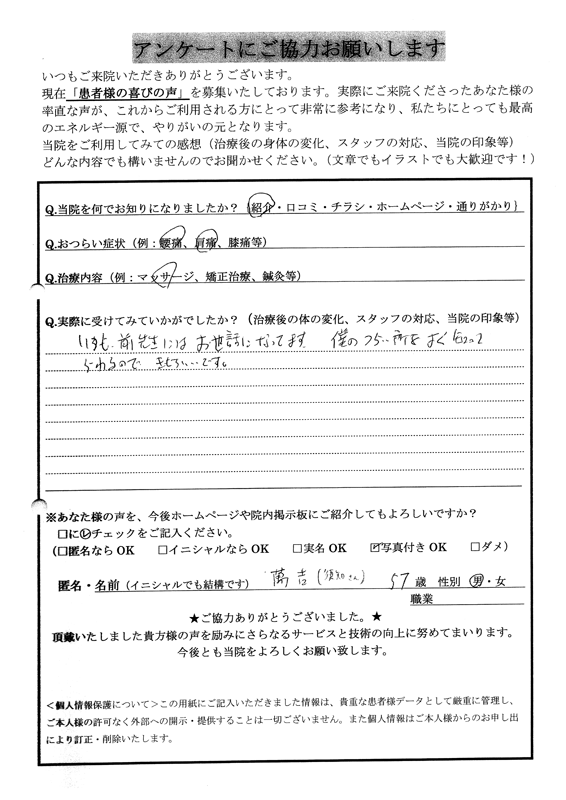 アンケートにご協力お願いします
いつもご来院いただきありがとうございます。
現在「患者様の喜びの声」を募集いたしております。実際にご来院くださったあなた様の
率直な声が、これからご利用される方にとって非常に参考になり、私たちにとっても最高
のエネルギー源で、やりがいの元となります。
当院をご利用してみての感想（治療後の身体の変化、スタッフの対応、当院の印象等）
どんな内容でも構いませんのでお聞かせください。（文章でもイラストでも大歓迎です！）
Q.当院を何でお知りになりましたか？{紹介・口コミ・チラシ・ホームページ・通りがかり}
Q.おつらい症状（例：腰痛、肩痛、膝痛等）
Q.治療内容（例：マッサージ、矯正治療、鍼灸等）
Q.実際に受けてみていかがでしたか？（治療後の体の変化、スタッフの対応、当院の印象等）
いつも、前先生にはお世話になってます 僕のつらい所をよく知って
らわるので きもちいいです。
※あなた様の声を、今後ホームページや院内掲示板にご紹介してもよろしいですか？
□に✓チェックをご記入ください。
（□匿名なら OK □イニシャルなら OK □実名 OK ☑写真付き OK □ダメ）
匿名・名前（イニシャルでも結構です） 萬吉（須知さん） 57歳 性別 男・女
職業
★ご協力ありがとうございました。★
頂戴いたしました貴方様の声を励みにさらなるサービスと技術の向上に努めてまいります。
今後とも当院をよろしくお願い致します。
＜個人情報保護について＞この用紙にご記入いただきました情報は、貴重な患者様データとして厳重に管理し、
ご本人様の許可なく外部への開示・提供することは一切ございません。また個人情報はご本人様からのお申し出
により訂正・削除いたします。